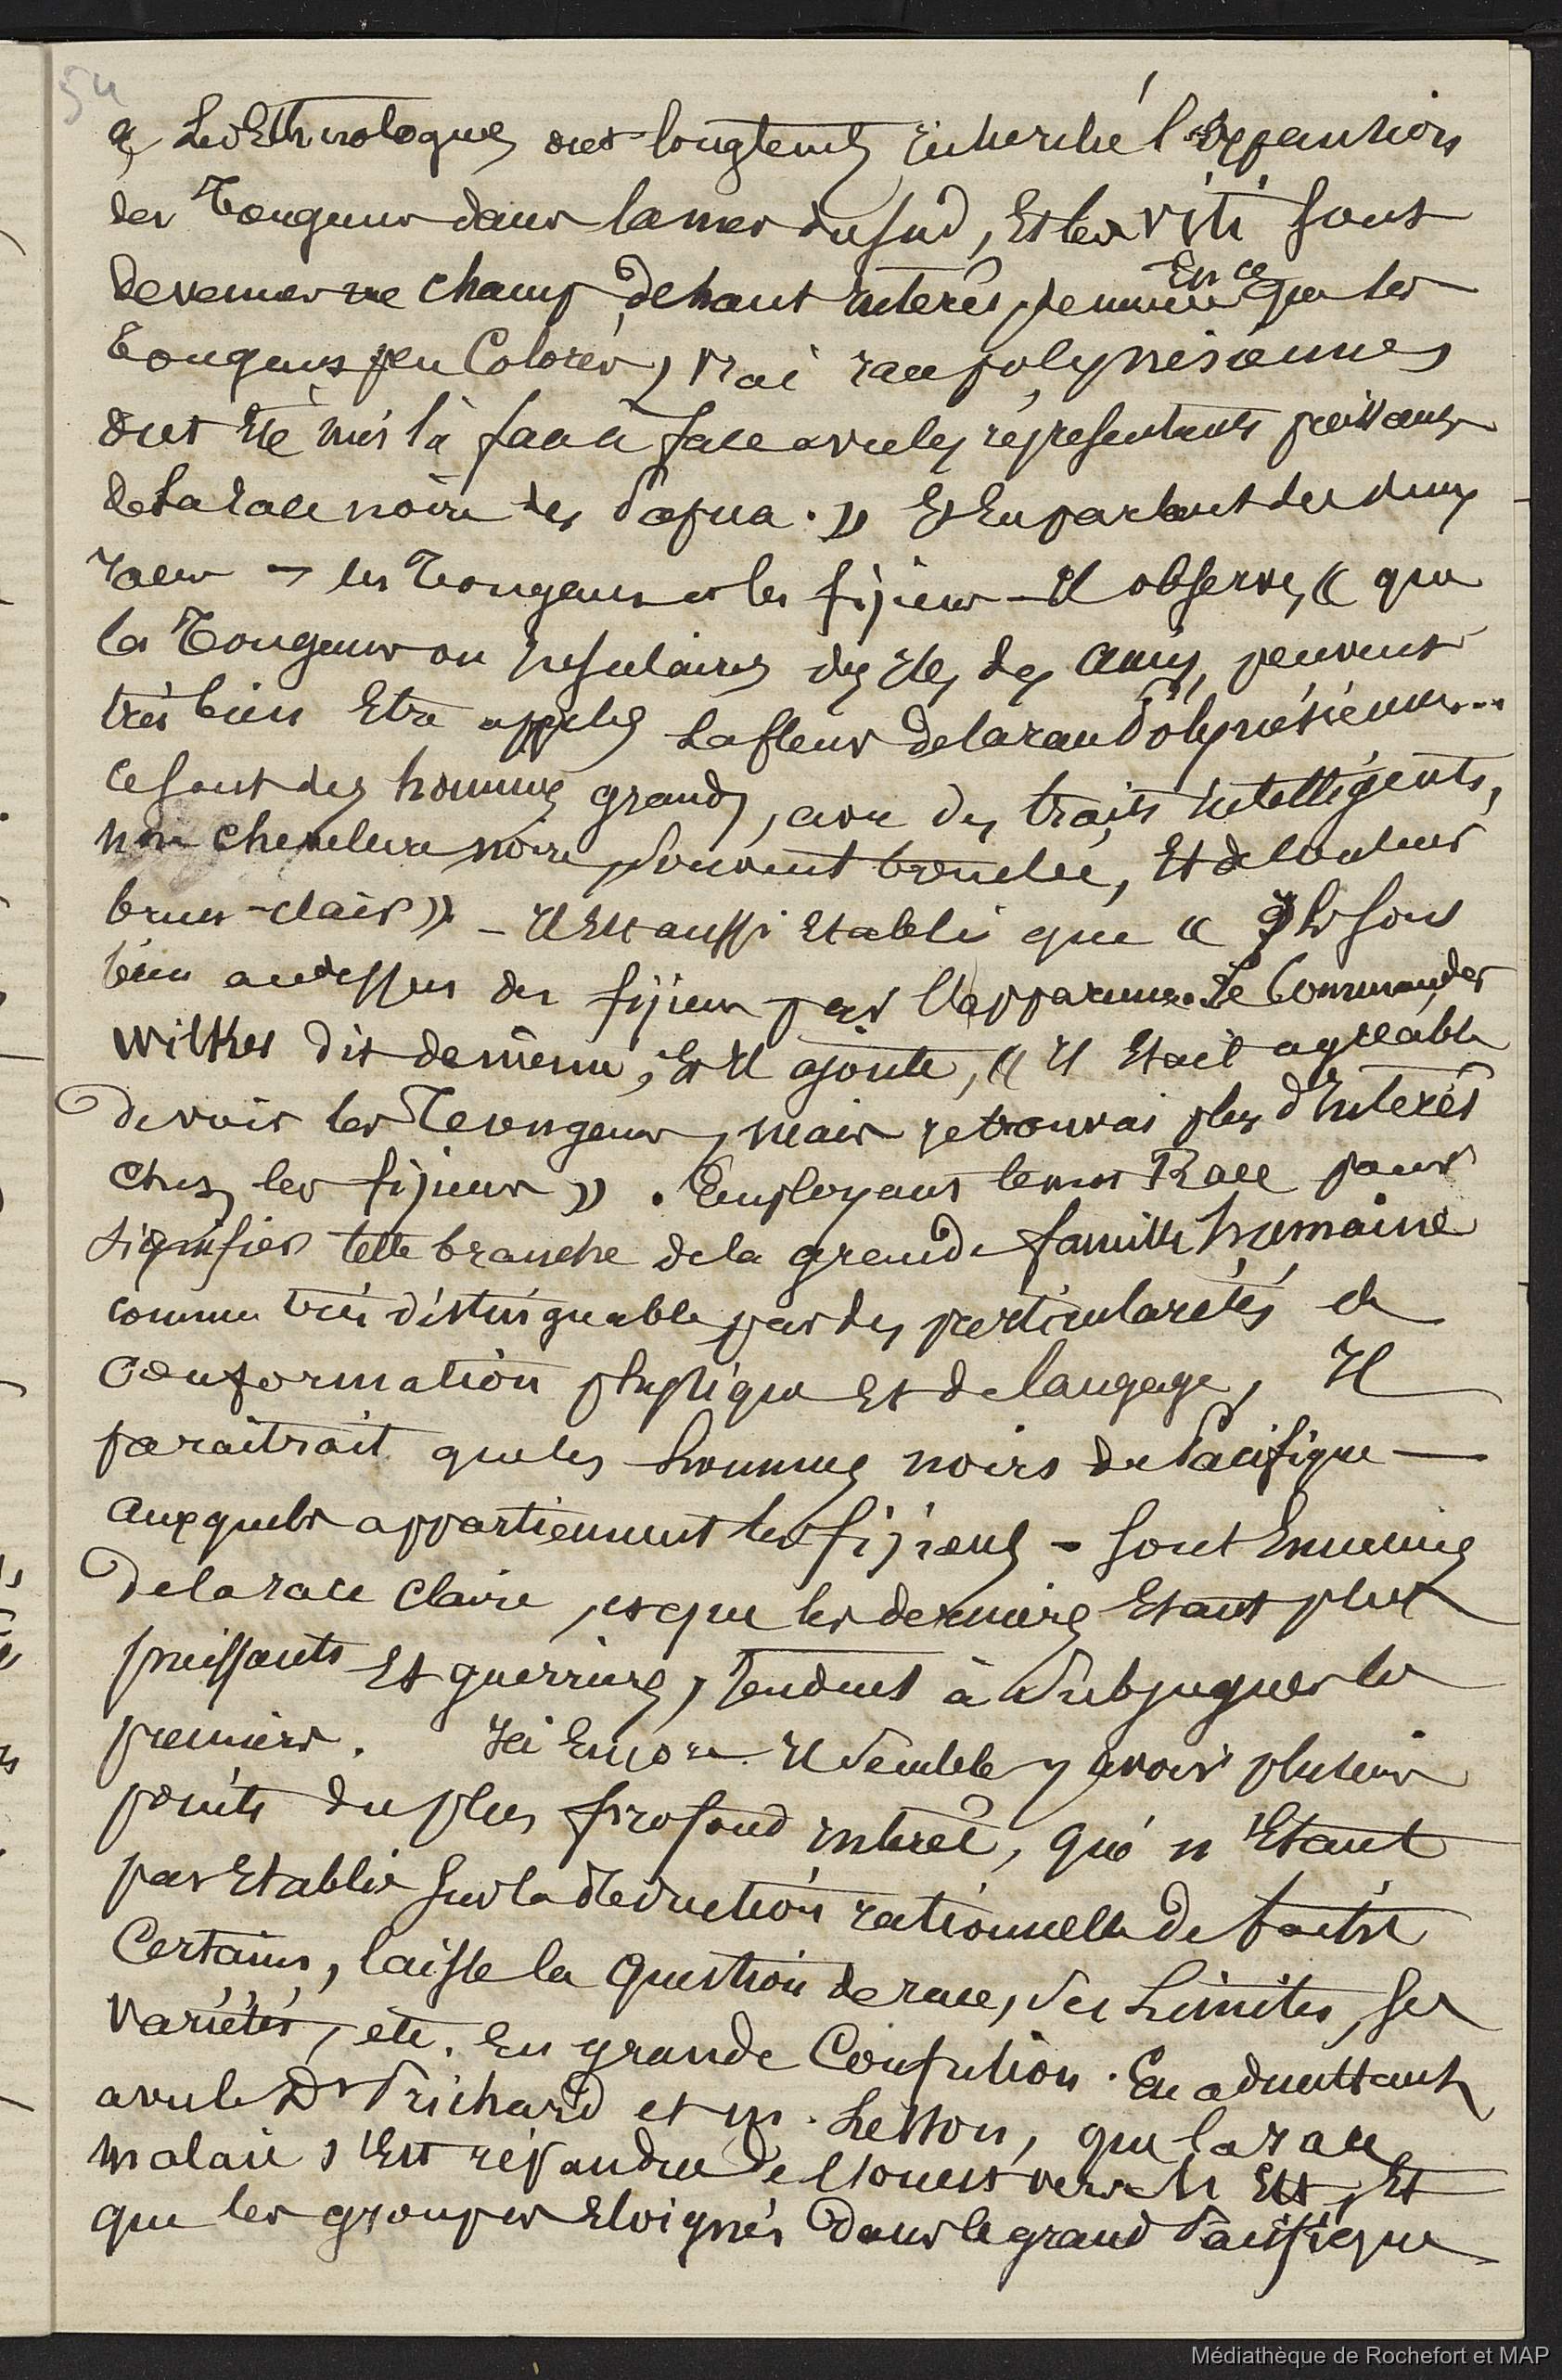 54
« Les Ethnologues ont longtemps recherché l'expansion
des Tongiens dans la mer du sud, Et les viti sont
devenues un champ de haut intérêt, En ce que les
Tongiens peu Colorés, vrai race polynésienne,
ont Eté mis là face à face avec les représentants puissants
de la race noire des Papua. » Et En parlant des deux
races – les Tongiens et les fijiens – Il observe, « que
les Tongiens ou insulaires des Iles des Amis, peuvent
très bien Etre appelés la fleur de la race Polynésienne...
ce sont des hommes grands, avec des traits intelligents,
une chevelure noire, souvent bouclée, Et de couleur
brun-clair » – Il Est aussi Etabli que « Ils sont
bien audessus des fijiens par l'apparence. Le Commander
Wilkes dit de même, Et Il ajoute, « Il Etait agréable
de voir les Tongiens, mais je trouvai plus d'intérêt
chez les fijiens ». Employant le mot Race pour
signifier telle branche de la grande famille humaine
comme très distinguable par des particularités de
conformation physique Et de langage, Il
paraîtrait que les hommes noirs du Pacifique –
auxquels appartiennent les fijiens – sont Ennemis
de la race claire, et que les derniers Etant plus
puissants Et guerriers, tendent à subjuguer les
premiers. Ici Encore Il semble y avoir plusieurs
points du plus profond intérêt, qui n'Etant
pas Etablis sur la déduction rationnelle de faits
Certains, laisse la question de race, ses Limites, ses
variétés, etc. En grande Confusion. En admettant
avec le Dr Prichard et M. Lesson, que la race
malaie s'Est répandue de l'ouest vers l'Est, Et
que les groupes Eloignés dans le grand Pacifique
Médiathèque de Rochefort et MAP